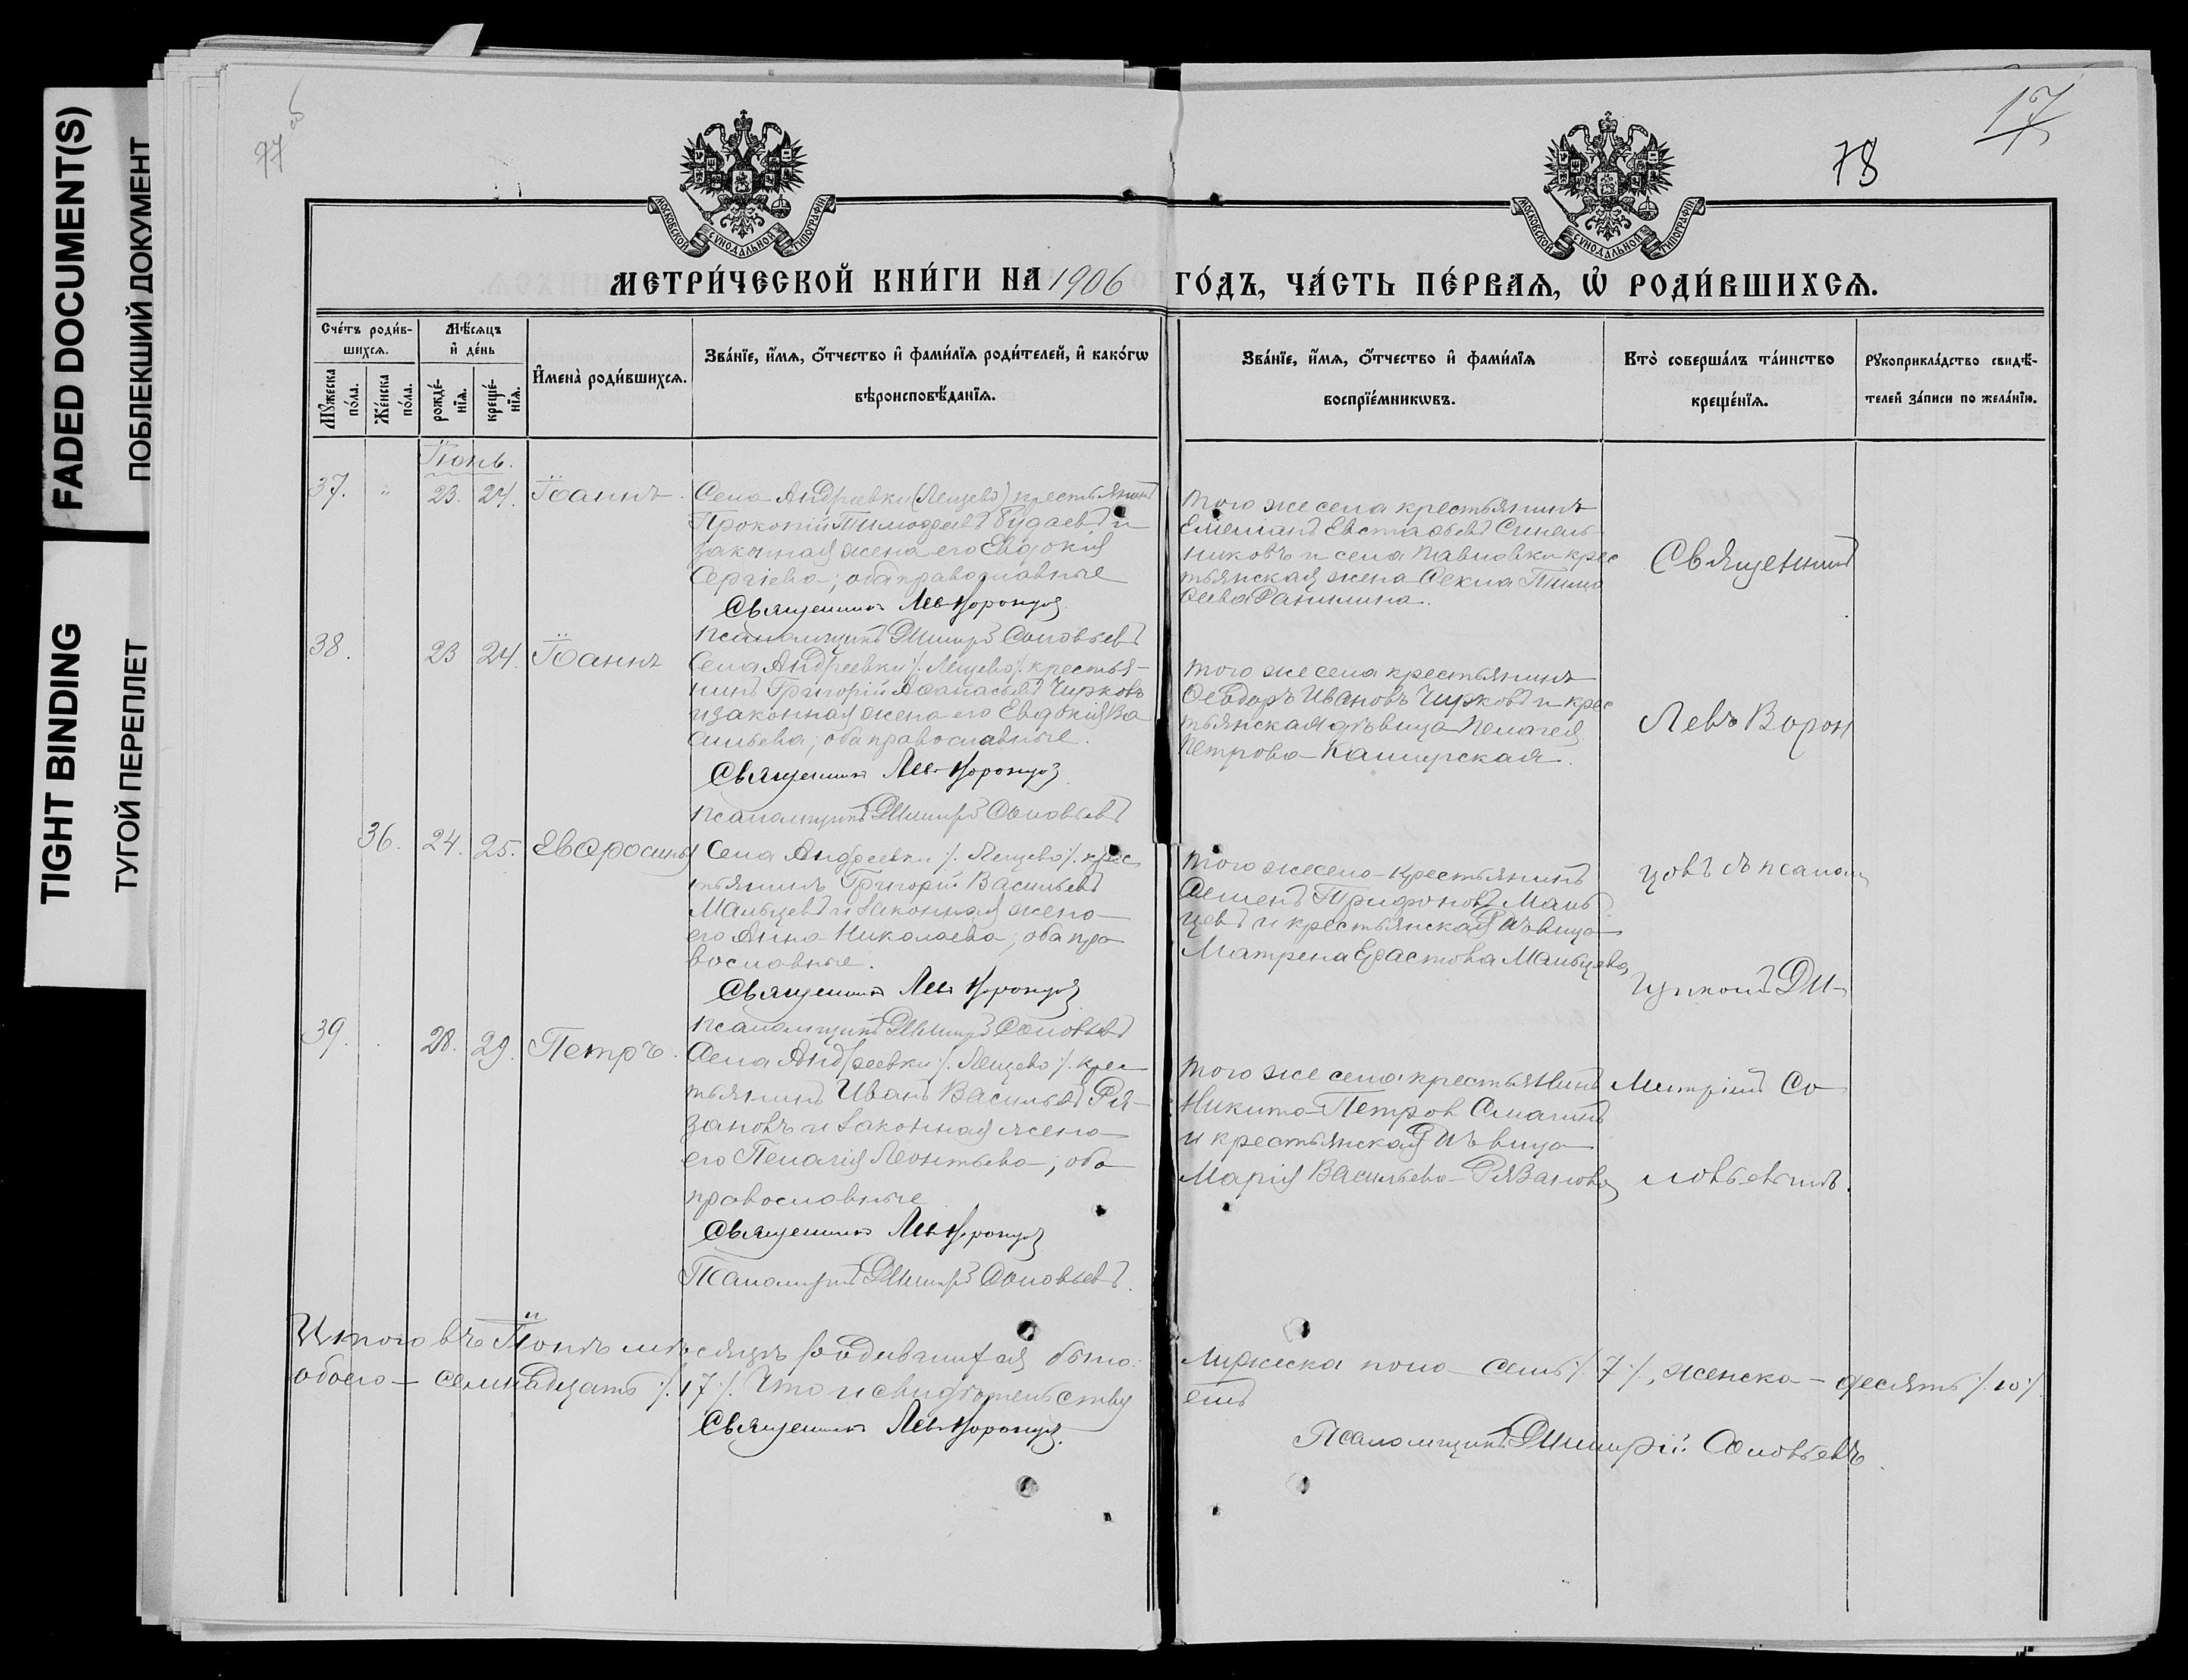 FADED DOCUMENT(S)
ПОБЛЕКШИЙ ДОКУМЕНТ
TIGHT BINDING
ТУГОЙ ПЕРЕПЛЕТ
77 об
17
78
МОСКОВСКОЙ СУНОДАЛЬНОЙ ТИПОГРАФІИ
МОСКОВСКОЙ СУНОДАЛЬНОЙ ТИПОГРАФІИ
МЕТРИ́ЧЕСКОЙ КНИ́ГИ НА 1906 ГО́ДЪ, ЧА́СТЬ ПЕ́РВАѦ, Ѡ҆ РОДИ́ВШИХСѦ.
Сче́тъ роди́в-
шихсѧ.
Мꙋ́жеска по́ла.
Же́нска по́ла.
Мѣ́сѧцъ
и҆ де́нь
рожде́-
нїѧ.
креще́-
нїѧ.
И҆мена̀ роди́вшихсѧ.
Зва́нїе, и҆́мѧ, ѻ҆́тчество и҆ фами́лїѧ роди́телей, и҆ како́гѡ
вѣроисповѣ́данїѧ.
Зва́нїе, и҆́мѧ, ѻ҆́тчество и҆ фами́лїѧ
воспрїе́мникѡвъ.
Кто̀ соверша́лъ та́инство
креще́нїѧ.
Рꙋкоприкла́дство свидѣ́-
телей за́писи по жела́нїю.
Іюнь.
37. " 23. 24. Іоаннъ.
Села Андреевки (Лещево) крестьянинъ
Прокопій Тимофеевъ Будаевъ и
законная жена его Евдокія
Сергіева; оба православные
Священникъ Левъ Воронцовъ
Псаломщикъ Димитрій Соловьевъ
того же села крестьянинъ
Емеліанъ Евстафьевъ Синель-
никовъ и села Павловки крес
тьянская жена Фекла Тимо
феева Ранинина.
38. 23 24. Іоаннъ
Села Андреевки /. Лещево /. крестья-
нинъ Григорій Афанасьевъ Чирковъ
и законная жена его Евдокія Ва
сильева; оба православные.
Священникъ Левъ Воронцовъ
Псаломщикъ Димитрій Соловьевъ
того же села крестьянинъ
Феодоръ Ивановъ Чирковъ и крес
тьянская дѣвица Пелагея
Петрова Каширская.
36. 24. 25. Евфросинія
Села Андреевки /. Лещево /. крес
тьянинъ Григорій Васильевъ
Мальцевъ и законная жена
его Анна Николаева; оба пра
вославные.
Священникъ Левъ Воронцовъ
Псаломщикъ Димитрій Соловьевъ
того же села крестьянинъ
Семенъ Трифоновъ Маль
цевъ и крестьянская дѣвица
Матрена Ерастова Мальцева
39. 28. 29. Петръ.
Села Андреевки /. Лещево /. крес
тьянинъ Иванъ Васильевъ Ря-
зановъ и законная жена
его Пелагія Леонтьева; оба
православные
Священникъ Левъ Воронцовъ
Псаломщикъ Димитрій Соловьевъ.
того же села крестьянинъ
Никита Петров Смагинъ
и крестьянская дѣвица
Марія Васильева Рязанова
Священникъ
Левъ Ворон
цовъ съ псалом
щикомъ Ди-
митріемъ Со
ловьевымъ.
Итого въ Іюнѣ мѣсяцѣ родившихся было: мужеска пола семь /. 7 /., женска - десять /. 10 /.
обоего - семнадцать /. 17 /. Что и свидѣтельству емъ
Священникъ Левъ Воронцовъ.
Псаломщикъ Димитрій Соловьевъ.